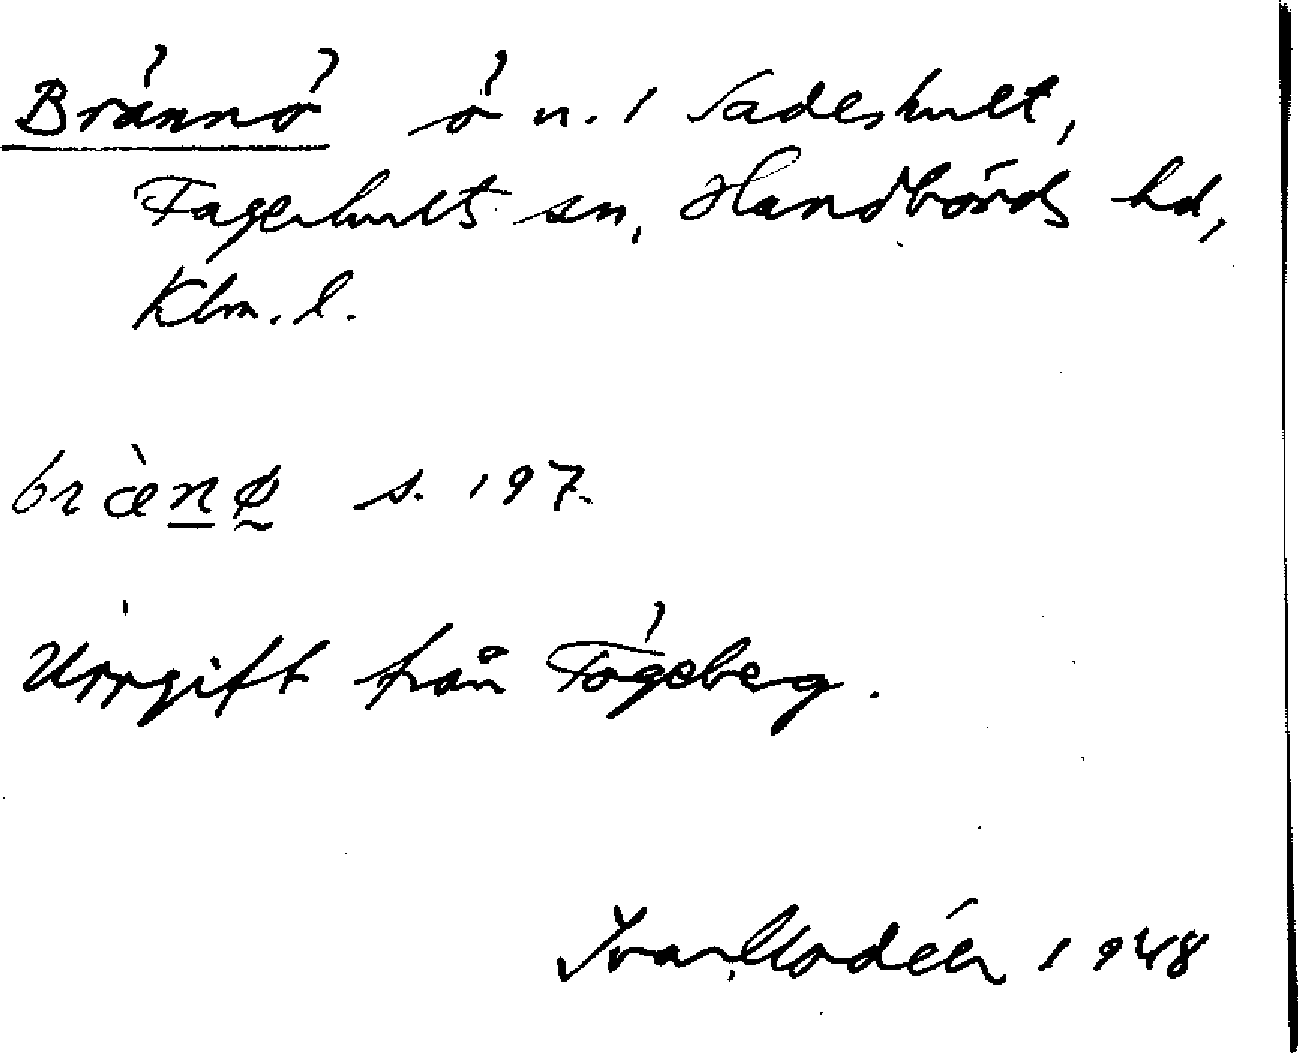 Brännö ö n. i Sadeshult,
Fagerhults sn, Handbörds hd,
Klm. l.
brànø s. 197.
Uppgift från Fågeberg.
Ivar Modéer 1948